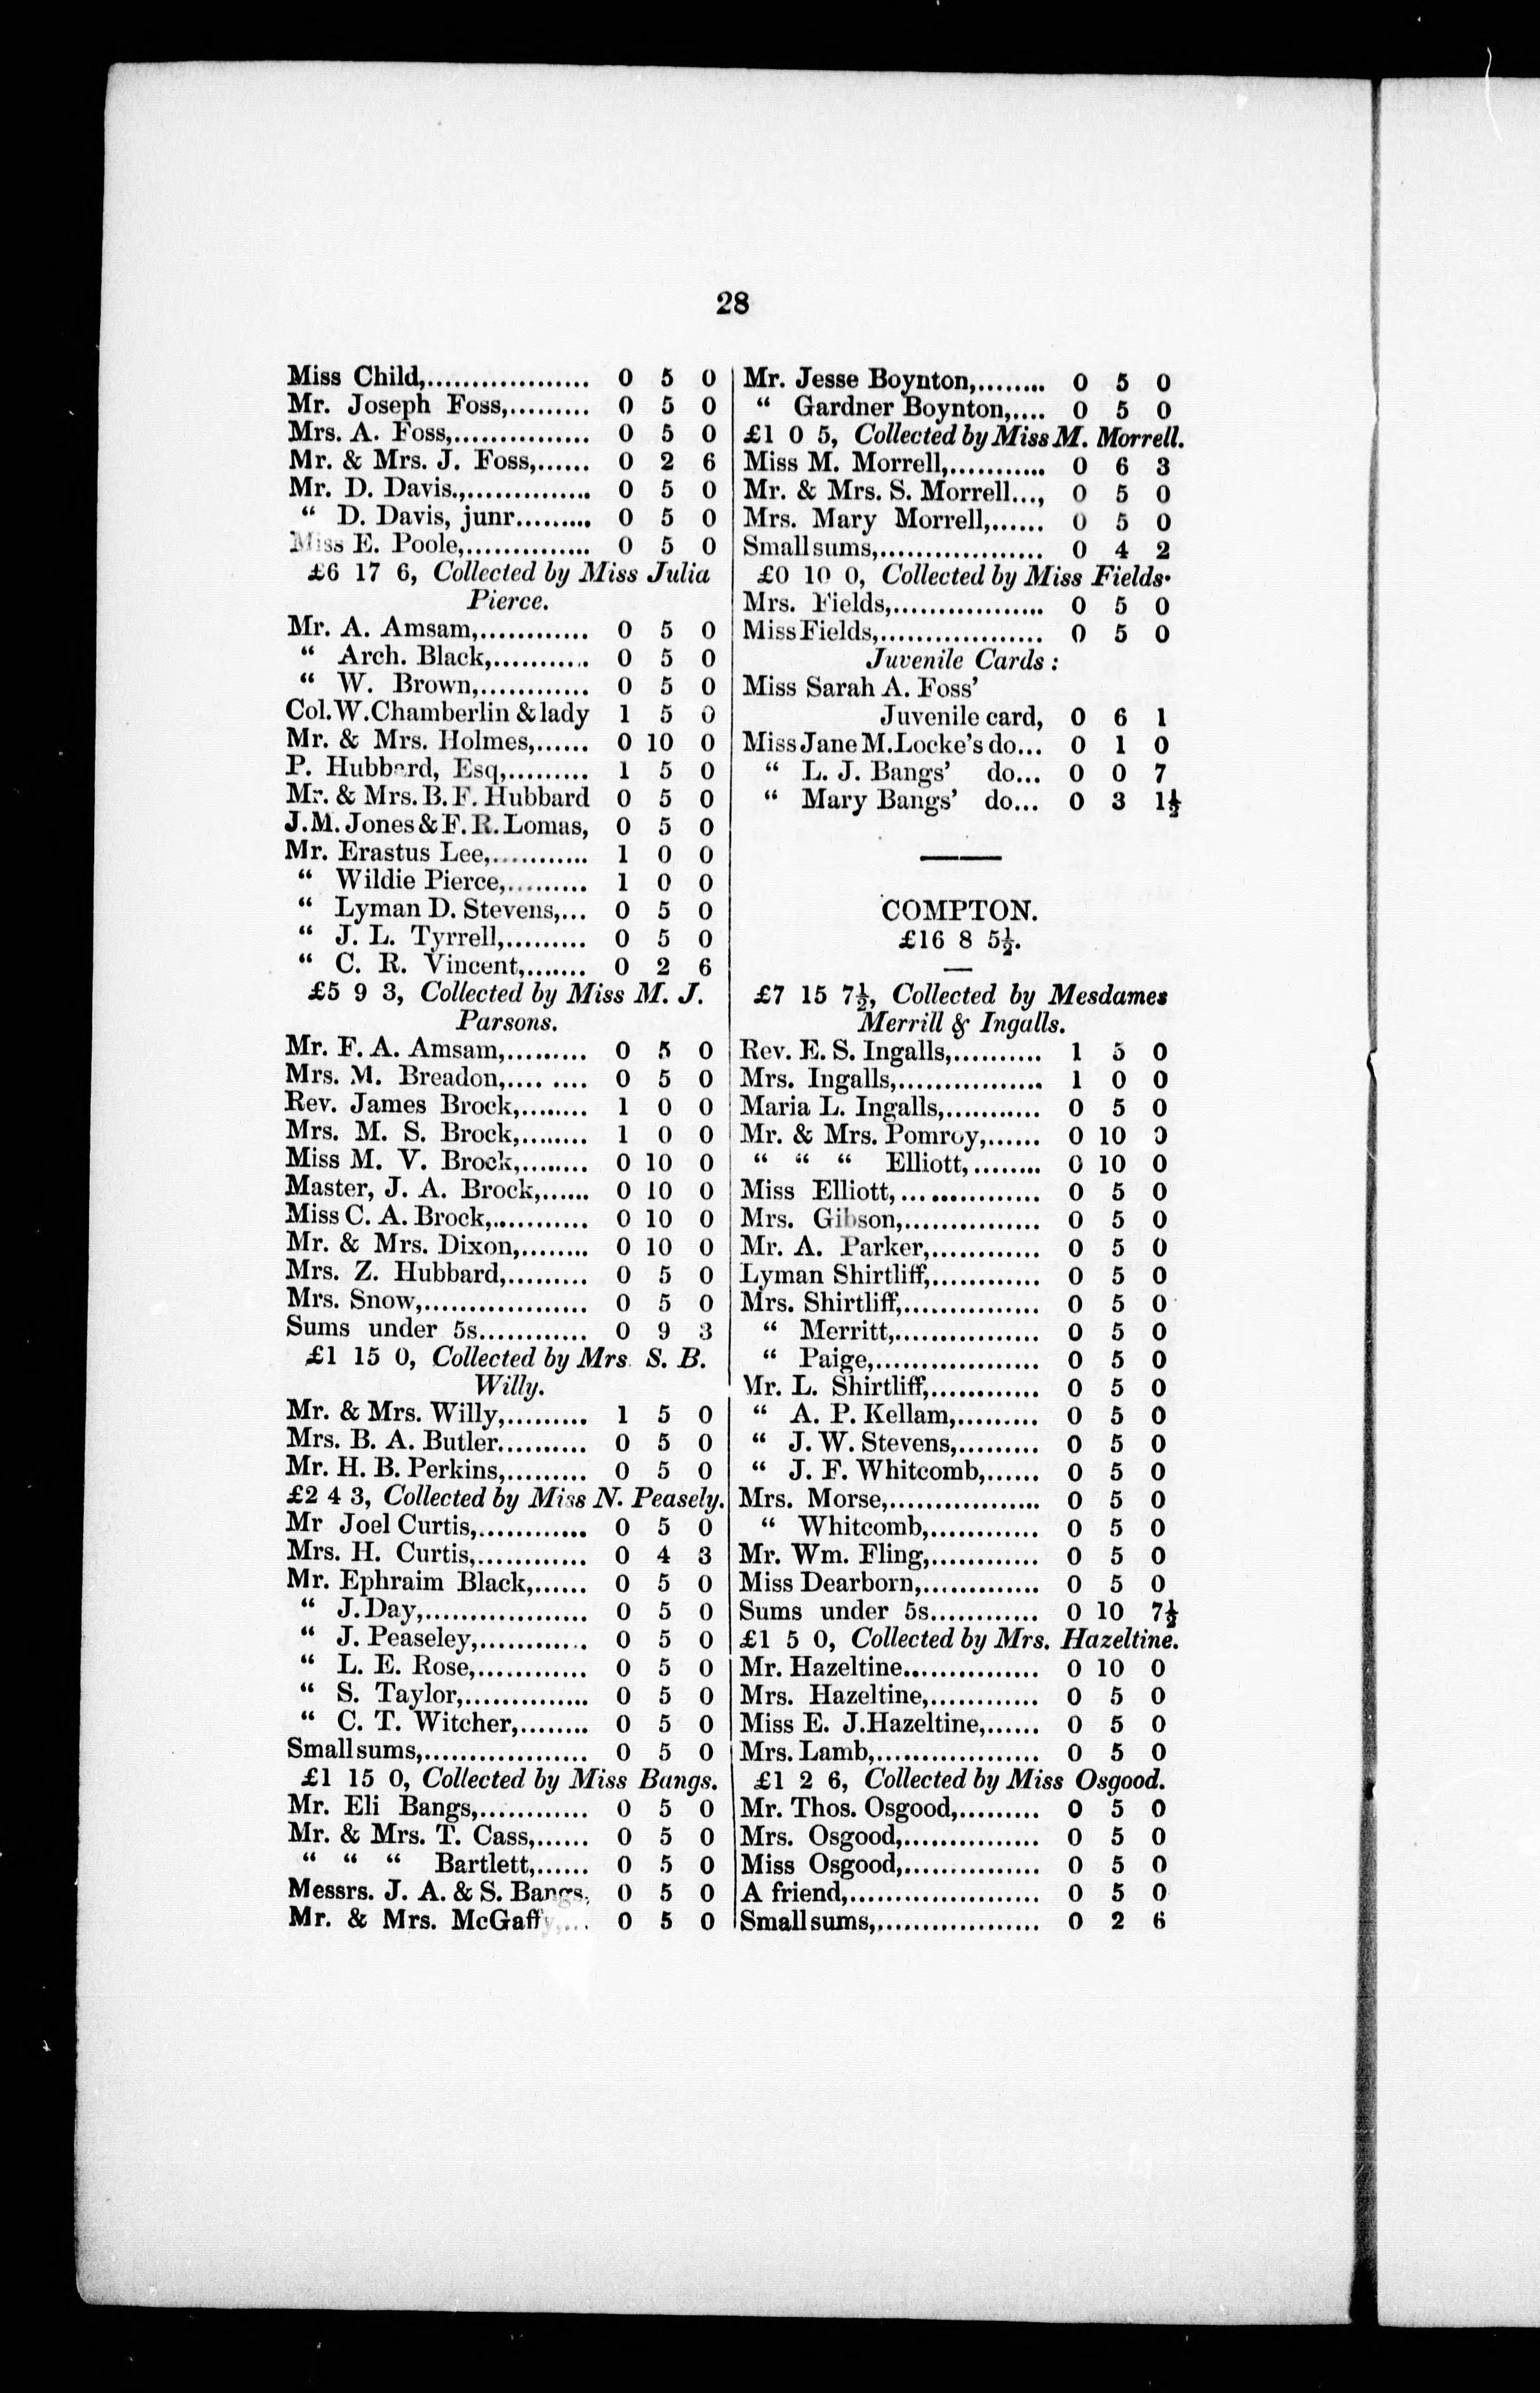 28
Miss Child,.................. 0 5 0
Mr. Joseph Foss,......... 0 5 0
Mrs. A. Foss,............... 0 5 0
Mr. & Mrs. J. Foss,...... 0 2 6
Mr. D. Davis.,.............. 0 5 0
“ D. Davis, junr......... 0 5 0
Miss E. Poole,.............. 0 5 0
£6 17 6, Collected by Miss Julia
Pierce.
Mr. A. Amsam,............ 0 5 0
“ Arch. Black,........... 0 5 0
“ W. Brown,............ 0 5 0
Col.W.Chamberlin & lady 1 5 0
Mr. & Mrs. Holmes,...... 0 10 0
P. Hubbard, Esq,......... 1 5 0
Mr. & Mrs. B. F. Hubbard 0 5 0
J.M. Jones & F. R. Lomas, 0 5 0
Mr. Erastus Lee,........... 1 0 0
“ Wildie Pierce,......... 1 0 0
“ Lyman D. Stevens,... 0 5 0
“ J. L. Tyrrell,......... 0 5 0
“ C. R. Vincent,....... 0 2 6
£5 9 3, Collected by Miss M. J.
Parsons.
Mr. F. A. Amsam,......... 0 5 0
Mrs. M. Breadon,.... .... 0 5 0
Rev. James Brock,........ 1 0 0
Mrs. M. S. Brock,........ 1 0 0
Miss M. V. Brock,........ 0 10 0
Master, J. A. Brock,...... 0 10 0
Miss C. A. Brock,........... 0 10 0
Mr. & Mrs. Dixon,........ 0 10 0
Mrs. Z. Hubbard,......... 0 5 0
Mrs. Snow,.................. 0 5 0
Sums under 5s............ 0 9 3
£1 15 0, Collected by Mrs. S. B.
Willy.
Mr. & Mrs. Willy,......... 1 5 0
Mrs. B. A. Butler.......... 0 5 0
Mr. H. B. Perkins,......... 0 5 0
£2 4 3, Collected by Miss N. Peasely.
Mr Joel Curtis,............ 0 5 0
Mrs. H. Curtis,............ 0 4 3
Mr. Ephraim Black,...... 0 5 0
“ J. Day,.................. 0 5 0
“ J. Peaseley,............ 0 5 0
“ L. E. Rose,............ 0 5 0
“ S. Taylor,.............. 0 5 0
“ C. T. Witcher,........ 0 5 0
Small sums,.................. 0 5 0
£1 15 0, Collected by Miss Bangs.
Mr. Eli Bangs,............ 0 5 0
Mr. & Mrs. T. Cass,...... 0 5 0
“ “ “ Bartlett,...... 0 5 0
Messrs. J. A. & S. Bangs, 0 5 0
Mr. & Mrs. McGaffy,... 0 5 0
Mr. Jesse Boynton,........ 0 5 0
“ Gardner Boynton,.... 0 5 0
£1 0 5, Collected by Miss M. Morrell.
Miss M. Morrell,........... 0 6 3
Mr. & Mrs. S. Morrell..., 0 5 0
Mrs. Mary Morrell,...... 0 5 0
Small sums,.................. 0 4 2
£0 10 0, Collected by Miss Fields.
Mrs. Fields,................. 0 5 0
Miss Fields,.................. 0 5 0
Juvenile Cards :
Miss Sarah A. Foss’
Juvenile card, 0 6 1
Miss Jane M. Locke’s do... 0 1 0
“ L. J. Bangs’ do... 0 0 7
“ Mary Bangs’ do... 0 3 1½
COMPTON.
£16 8 5½.
£7 15 7½, Collected by Mesdames
Merrill & Ingalls.
Rev. E. S. Ingalls,.......... 1 5 0
Mrs. Ingalls,................ 1 0 0
Maria L. Ingalls,........... 0 5 0
Mr. & Mrs. Pomroy,...... 0 10 0
“ “ “ Elliott,........ 0 10 0
Miss Elliott,............... 0 5 0
Mrs. Gibson,............... 0 5 0
Mr. A. Parker,............ 0 5 0
Lyman Shirtliff,............ 0 5 0
Mrs. Shirtliff,............... 0 5 0
“ Merritt,................ 0 5 0
“ Paige,.................. 0 5 0
Mr. L. Shirtliff,............ 0 5 0
“ A. P. Kellam,......... 0 5 0
“ J. W. Stevens,......... 0 5 0
“ J. F. Whitcomb,...... 0 5 0
Mrs. Morse,................. 0 5 0
“ Whitcomb,............ 0 5 0
Mr. Wm. Fling,............ 0 5 0
Miss Dearborn,............. 0 5 0
Sums under 5s............ 0 10 7½
£1 5 0, Collected by Mrs. Hazeltine.
Mr. Hazeltine............... 0 10 0
Mrs. Hazeltine,............ 0 5 0
Miss E. J. Hazeltine,...... 0 5 0
Mrs. Lamb,.................. 0 5 0
£1 2 6, Collected by Miss Osgood.
Mr. Thos. Osgood,......... 0 5 0
Mrs. Osgood,............... 0 5 0
Miss Osgood,............... 0 5 0
A friend,..................... 0 5 0
Small sums,.................. 0 2 6